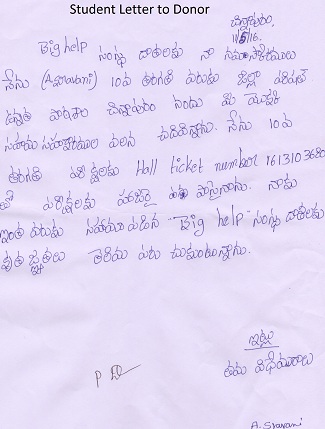 Student Letter to Donor
చిన్నాపురం,
11/5/16.
Big help సంస్థ దాతలకు నా నమస్కారములు
నేను (A.Sravani) 10వ తరగతి వరకు జిల్లా పరిషత్
ఉన్నత పాఠశాల చిన్నాపురం నందు మీ యొక్క
సహాయ సహకారముల వలన చదివినాను. నేను 10వ
తరగతి పరీక్షలకు Hall ticket number 1613103680
తో పరీక్షలకు హాజరై వ్రాసినాను. నాకు
ఇంత వరకు సహాయ పడిన Big help సంస్థ దాతలకు
కృతజ్ఞతలు తెలియ పరుచుకుంటున్నాను.
ఇట్లు
తమ విధేయురాలు
A. Sravani